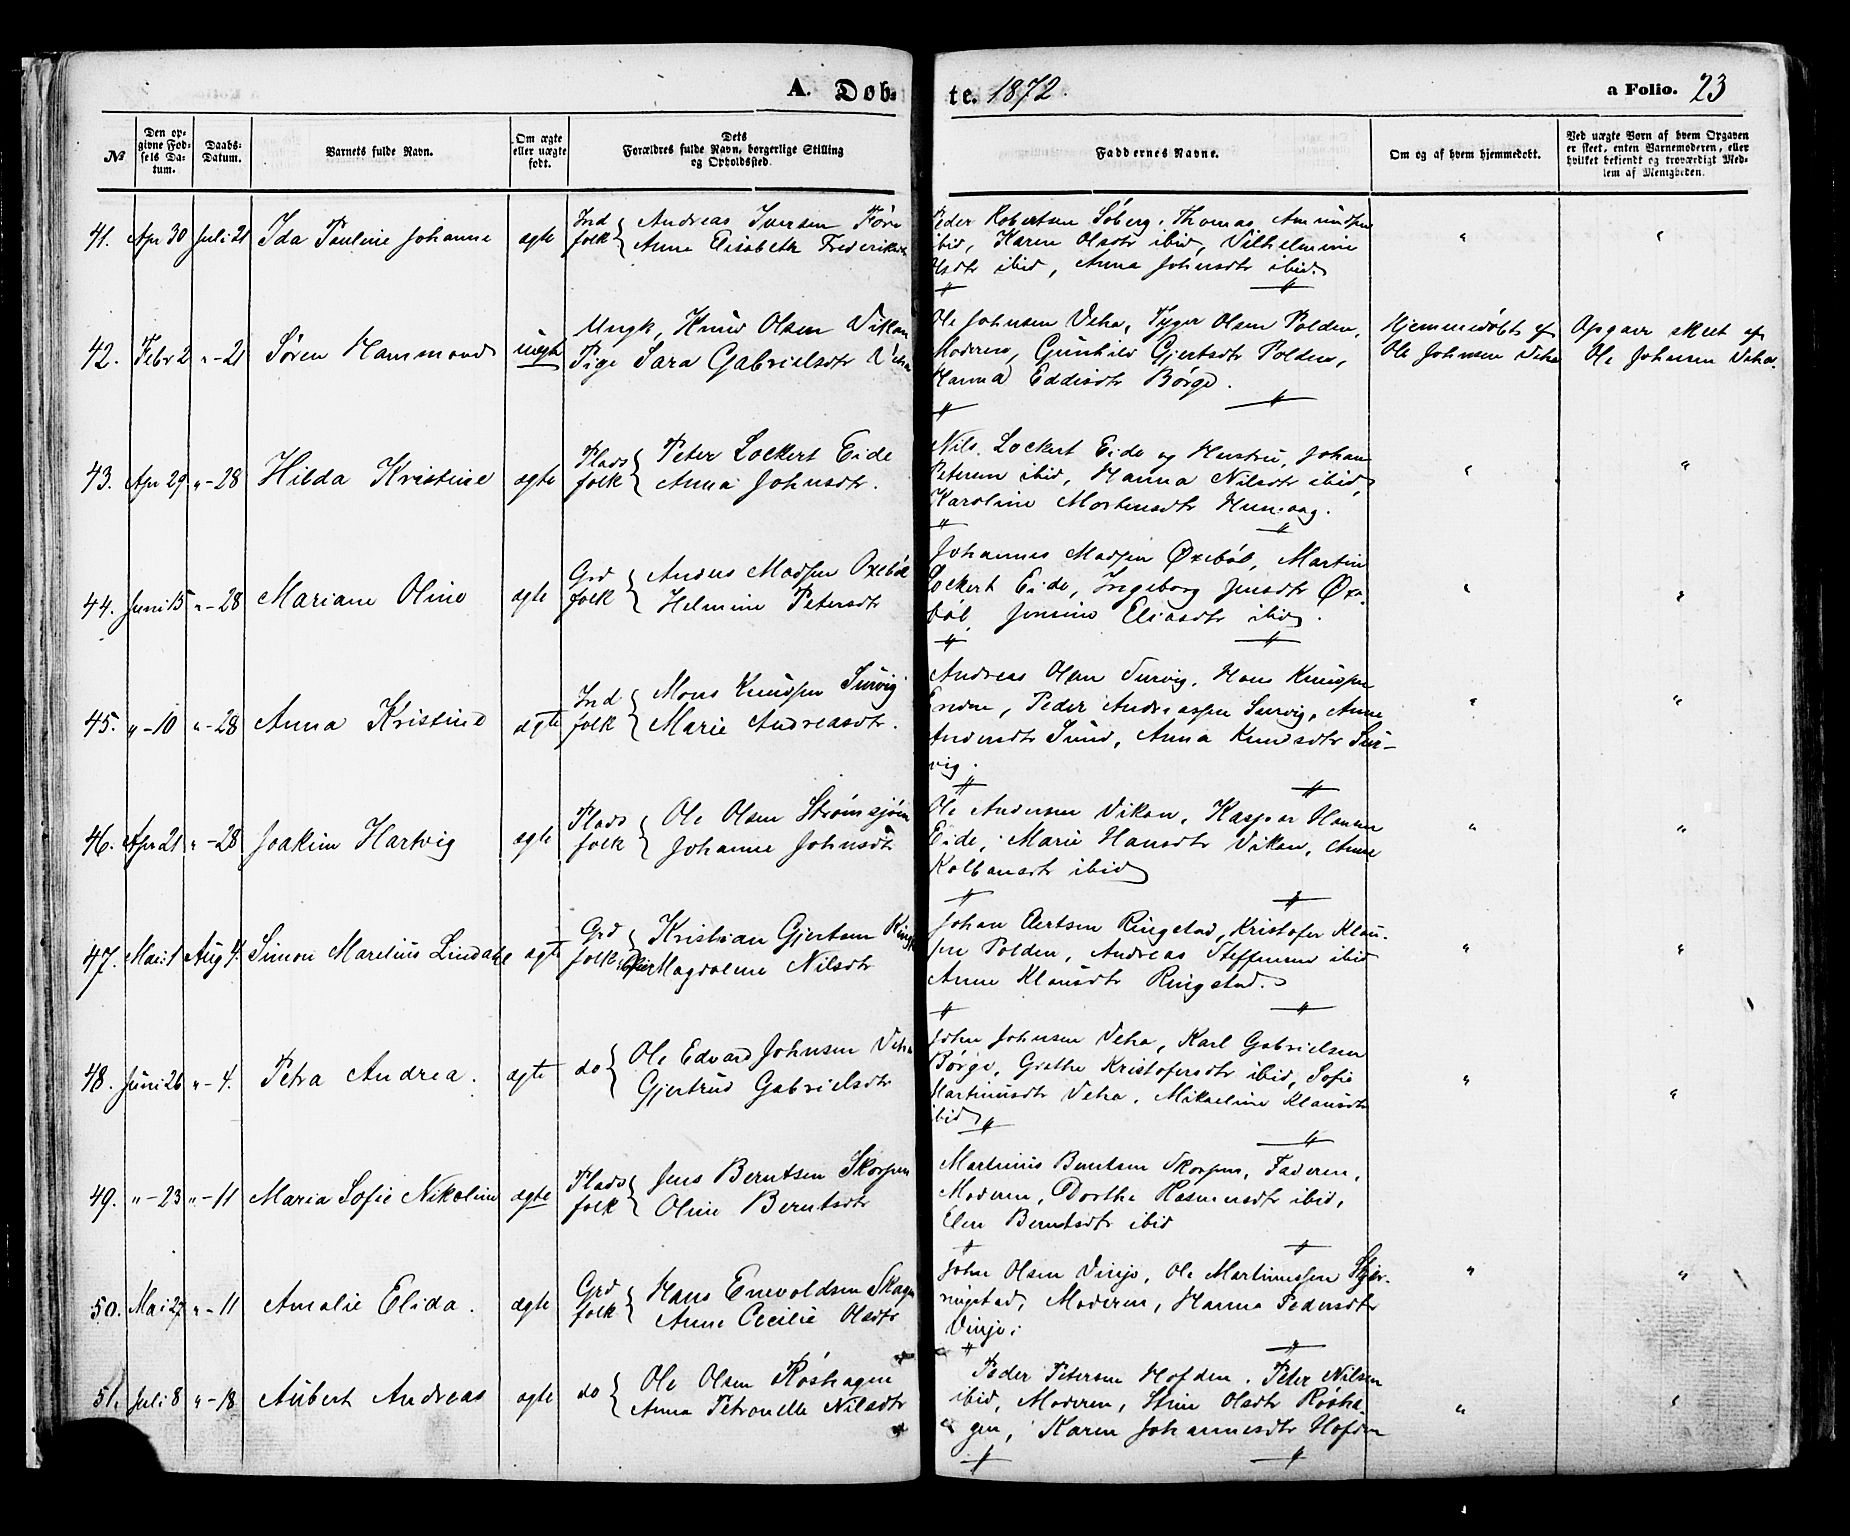 A. Døb-
te. 1872.
a Folio. 23
№
Den op-
givne Fød-
sels Da-
tum.
Daabs-
Datum.
Barnets fulde Navn.
Om ægte
eller uægte
født.
Dets
Forældres fulde Navn, borgerlige Stilling
og Opholdssted.
Faddernes Navne.
Om og af hvem hjemmedøbt.
Ved uægte Børn af hvem Opgaven
er skeet, enten Barnemoderen, eller
hvilket bekjendt og troværdigt Med-
lem af Menigheden.
41. Apr 30 Juli 21 Ida Pauline Johanne ægte Ind folk { Andreas Iversen
Anne Elisabeth
Peder Robertsen Søberg, Thomas Amundsen
ibid, Karen Olsdtr ibid, Vilhelmine
Olsdtr ibid, Anna Johnsdtr ibid.
42. Febr 2 „-21 Søren Hammond uægte Ungk, Knud Olsen Vikan
Pige Sara Gabrielsdtr Veha
Ole Johnsen Veha, Tyger Olsen Polden,
Moderen, Gunhild Gjertsdtr Polden,
Hanna Eddisdtr Børge.
Hjemmedøbt af
Ole Johnsen Veha
Opgave skeet af
Ole Johnsen Veha.
43. Apr 29 „-28 Hilda Kristine ægte Plads folk { Peter Lockert Eide
Anna Johnsdtr.
Nils Lockert Eide og Hustru, Johan
Petersen ibid, Hanna Nilsdtr ibid,
Karoline Mortensdtr
44. Juni 15 „-28 Mariane Oline ægte Grd folk { Anders Madsen Oxebøl
Helmine Petersdtr
Johannes Madsen Øxebøl, Martin
Lockert Eide, Ingeborg Jensdtr Øxe-
bøl, Jensine Eliasdtr ibid.
45. „-10 „-28 Anna Kristine ægte Ind folk { Mons Knudsen Survig
Marie Andreasdtr.
Andreas Olsen Survig, Hans Knudsen
Peder Andreassen Survig, Anne
Andersdtr Sund, Anna Knudsdtr Sur-
vig.
46. Apr 21 „-28 Joakim Hartvig ægte Plads folk { Ole Olsen Strømsjøen
Johanne Johnsdtr
Ole Andersen Vikan, Kasper Hansen
Eide, Marie Hansdtr Vikan, Anne
Kolbansdtr ibid
47. Mai 1 Aug 4. Simon Marelius Lindahl ægte Grd folk { Kristian Gjertsen
Magdalene Nilsdtr
Johan Eertsen Ringstad, Kristofer Klau-
sen Polden, Andreas Steffensen ibid
Anne Klausdtr Ringstad.
48. Juni 26 „-4. Petra Andrea. ægte do { Ole Edvard Johnsen Veha
Gjertrud Gabrielsdtr
John Johnsen Veha, Karl Gabrielsen
Børge, Grethe Kristofersdtr ibid, Sofie
Martinusdtr Veha, Mikaeline Klausdtr
ibid
49. „-23 „-11 Maria Sofie Nikoline ægte Plads folk { Jens Berntsen Skorpen
Oline Berntsdtr
Martinus Berntsen Skorpen, Faderen,
Moderen, Dorthe Rasmusdtr ibid,
Elen Berntsdtr ibid
50. Mai 27 „-11 Amalie Elida. ægte Grd folk { Hans Enevoldsen Skagen
Anne Cecilie Olsdtr
John Olsen Vinje, Ole Martinussen Skjer-
ningstad, Moderen, Hanna Pedersdtr
Vinje.
51. Juli 8 „-18 Aubert Andreas ægte do { Ole Olsen Røshagen
Anna Petronelle Nilsdtr
Peder Petersen Hofden, Peter Nilsen
ibid, Moderen, Stine Olsdtr Røsha-
gen, Karen Johannesdtr Hofden